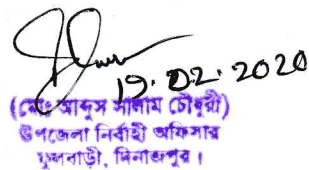 19.02.2020
(মোঃ আব্দুস সালাম চৌধুরী)
উপজেলা নির্বাহী অফিসার
ফুলবাড়ী, দিনাজপুর।